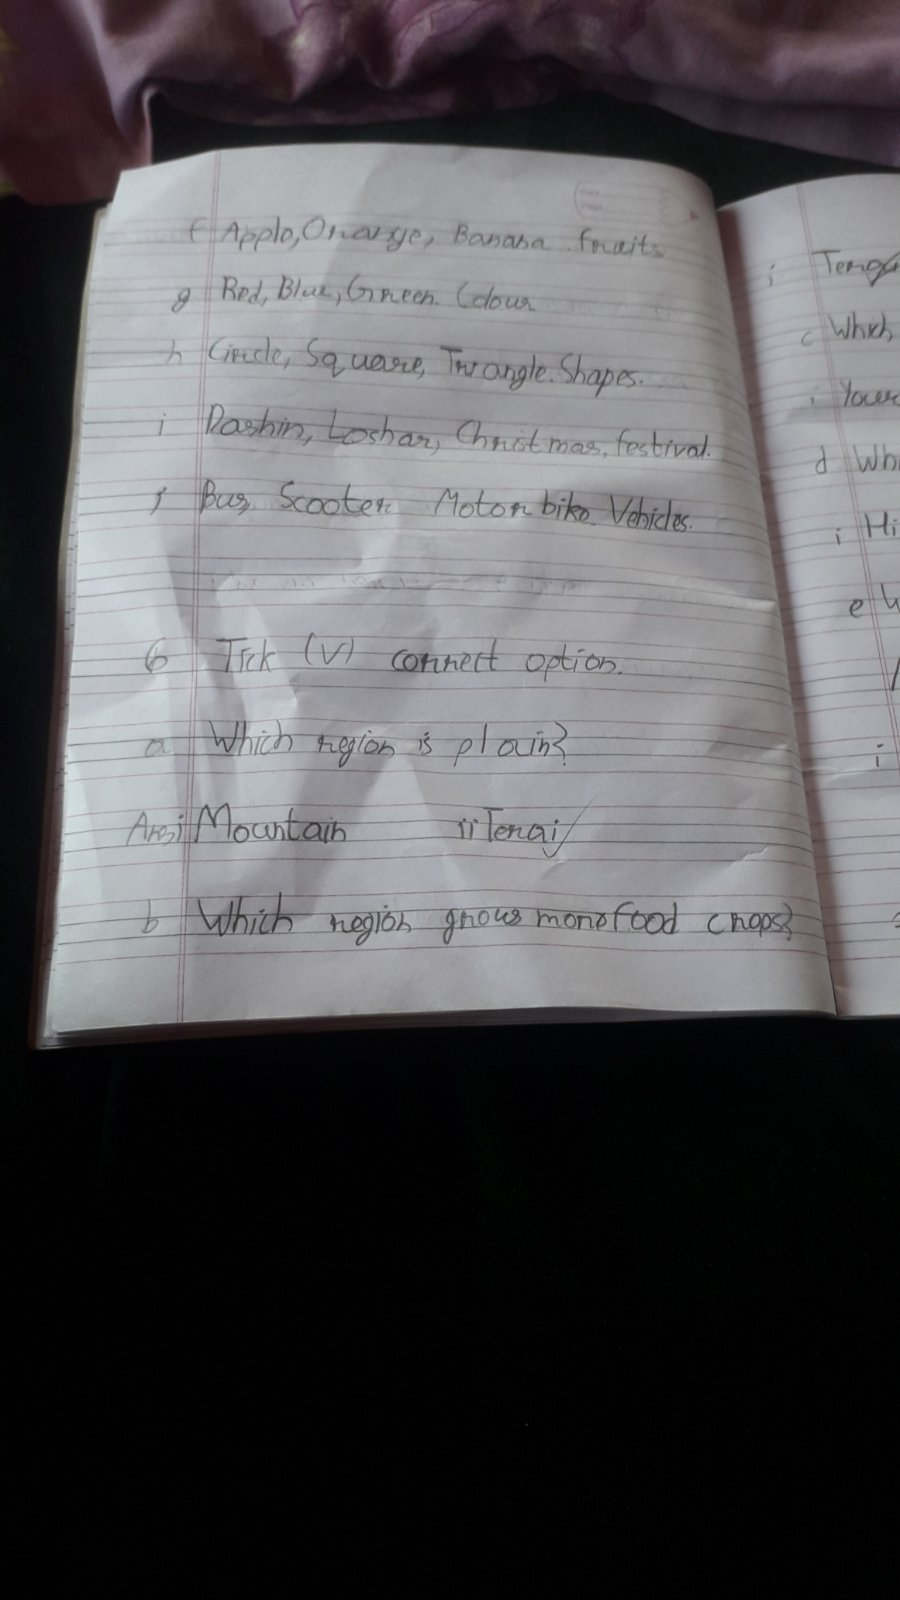 f Apple, Orange, Banana. fruits.
g Red, Blue, Green. Colour
h Circle, Square, Triangle. Shapes.
i Dashin, Loshar, Christmas, festival.
j Bus, Scooter Motorbike Vehicles.
6 Tick (√) correct option.
a Which region is plain?
Ans i Mountain ii Terai √
b Which region grows more food crops?
i Terai
c Which
i
d Wh
i Hi
e W
i